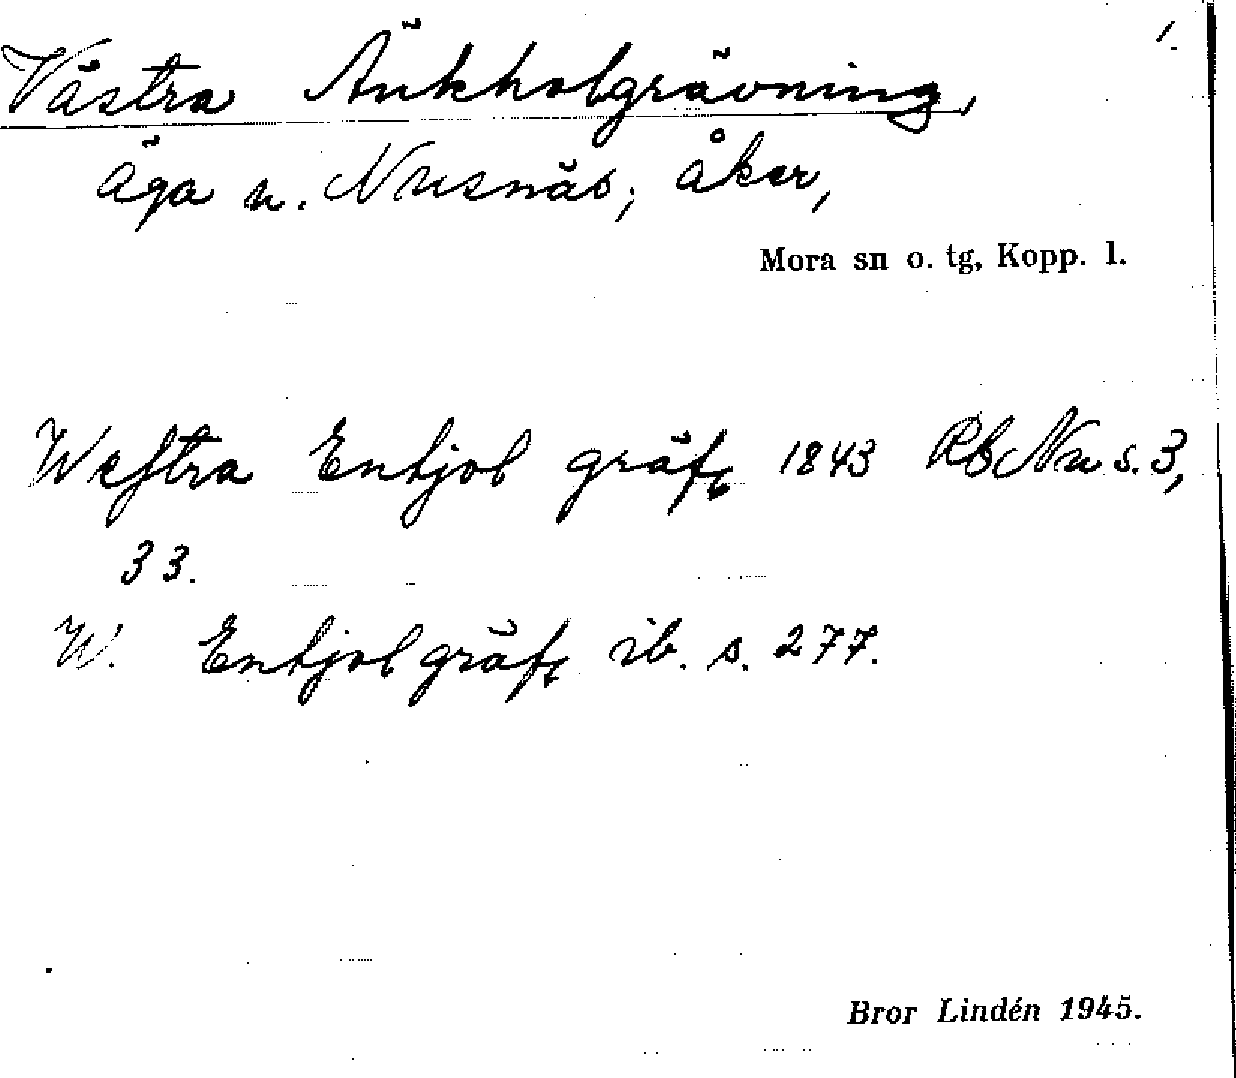 1.
Västra Änkholgrävning,
äga n. Nusnäs, åker,
Mora sn o. tg, Kopp. l.
Weſtra Enkjol gräfg 1843 Rb Nu s. 3,
33.
W. Enkjolgräfg ib. s. 277.
Bror Lindén 1945.